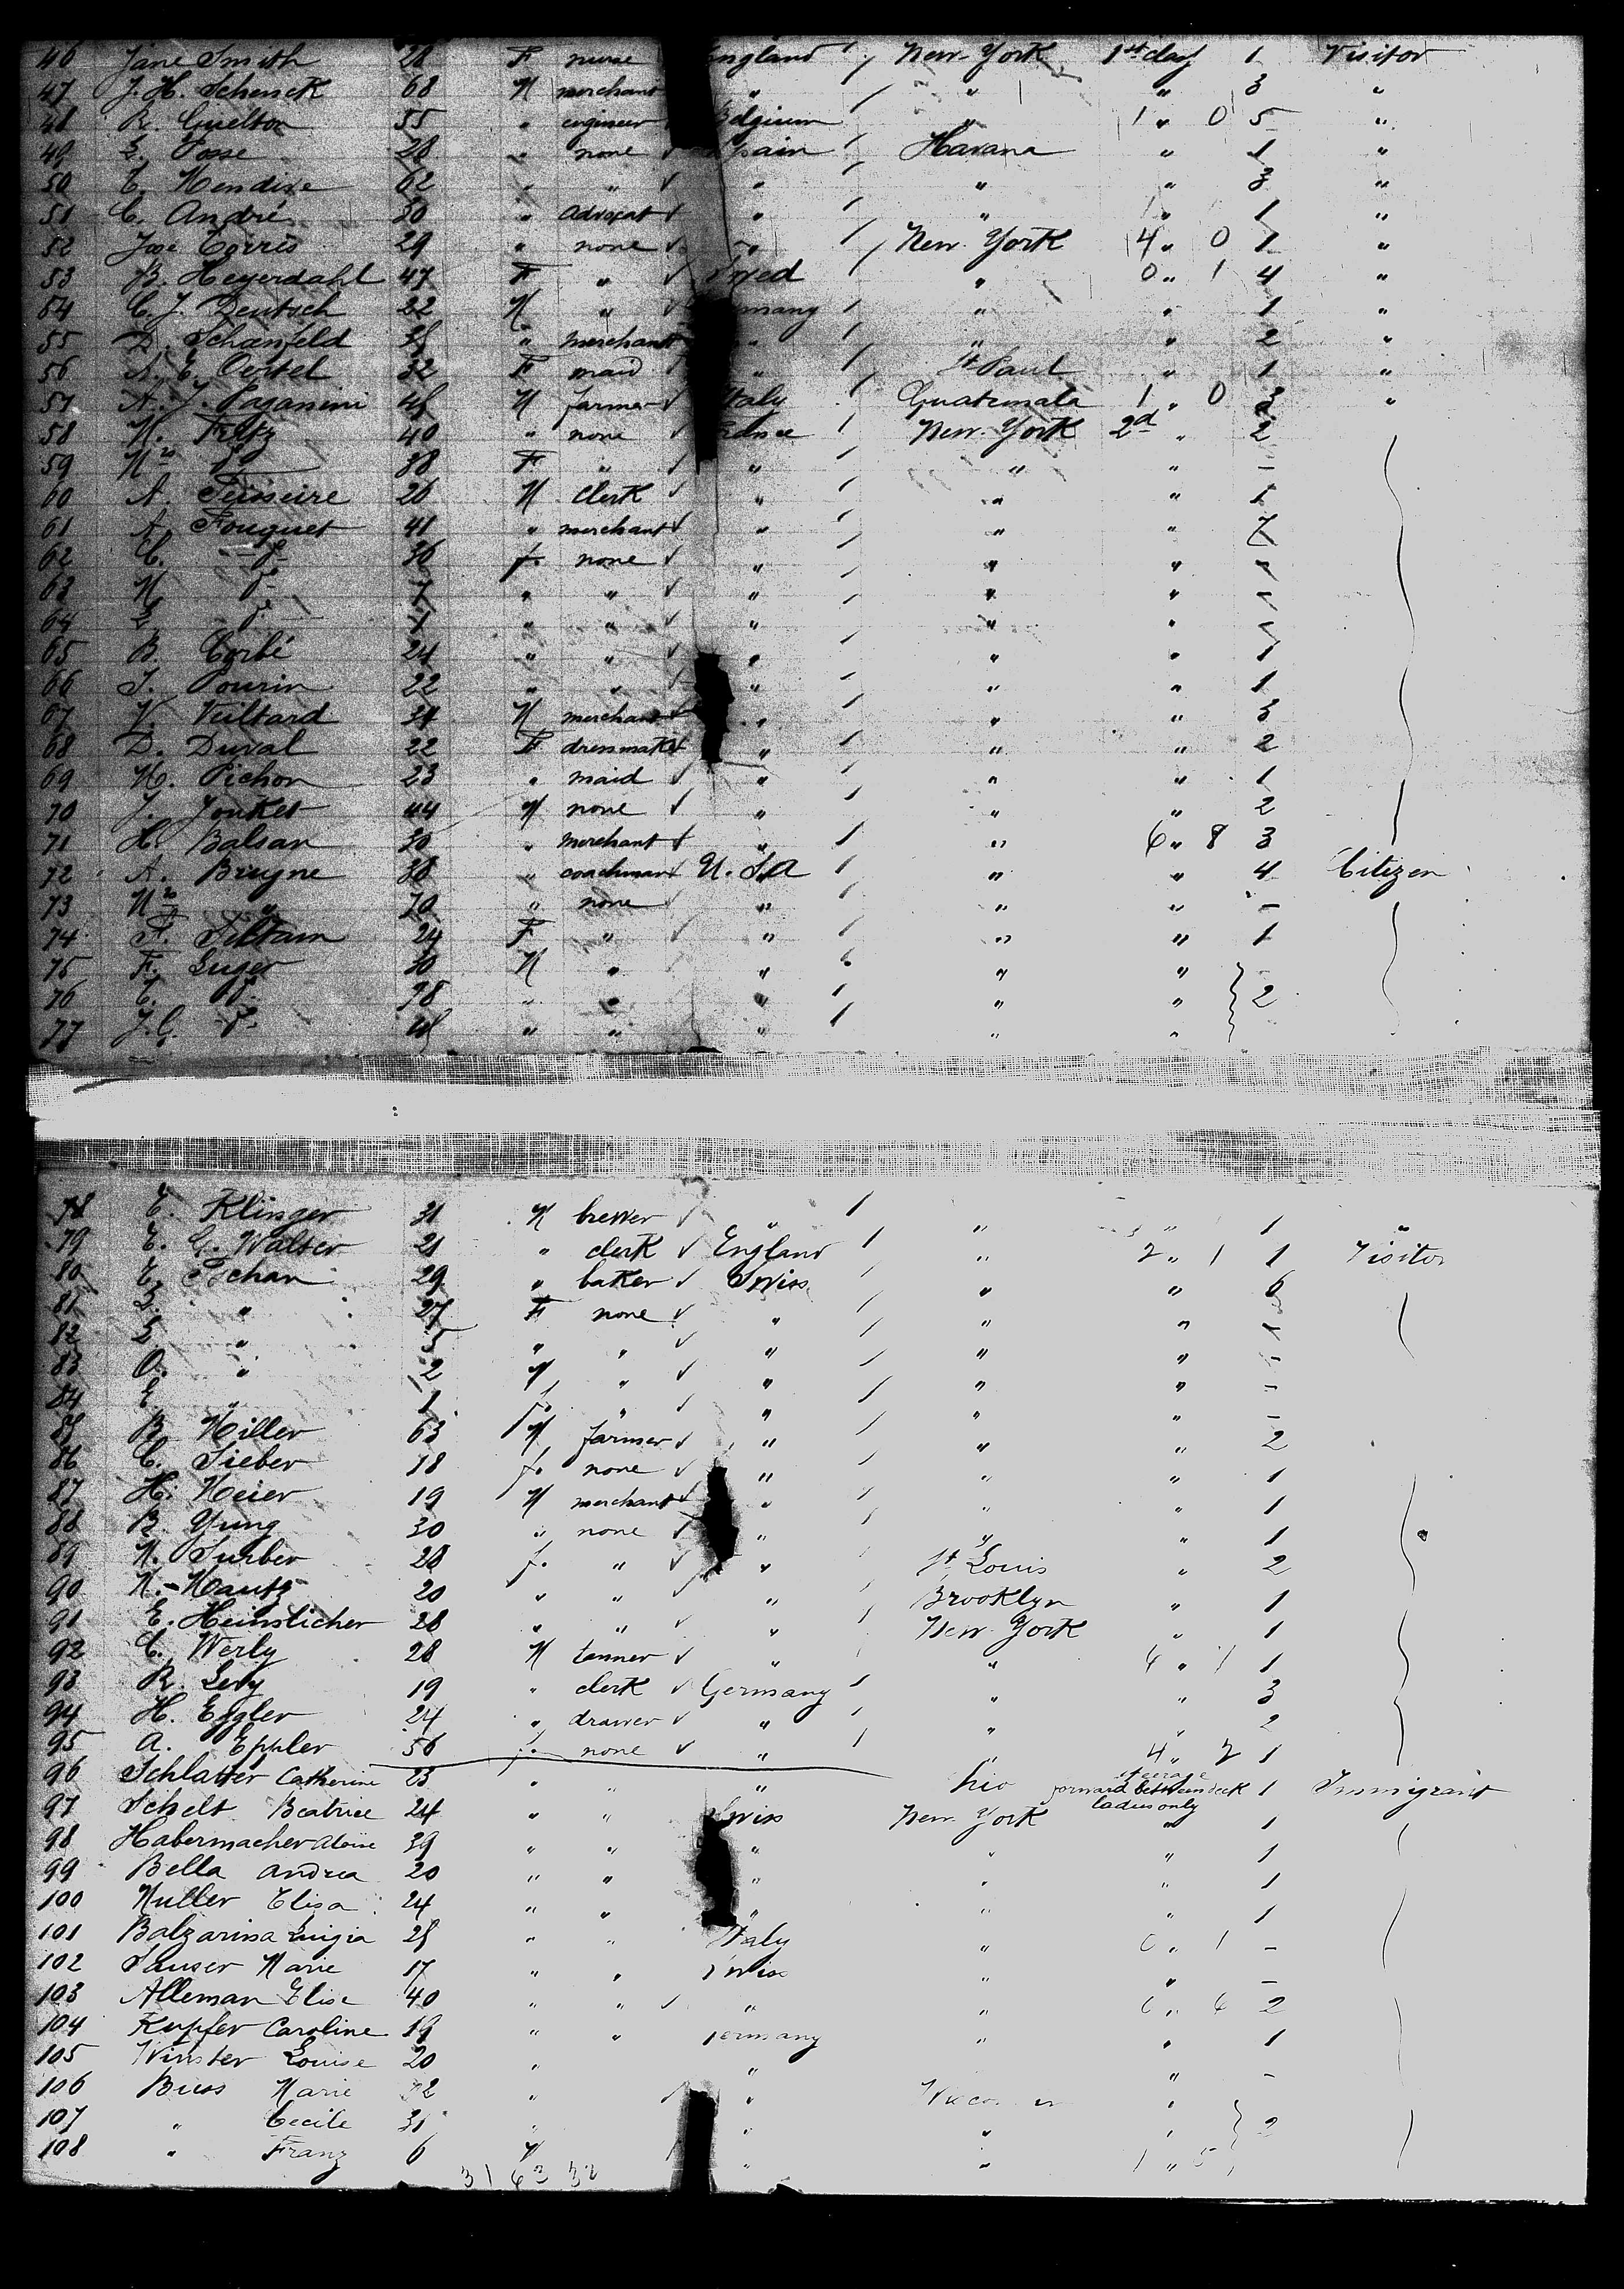 46 Jane Smith 28 F nurse England New-York 1st class 1 Visitor
47 J. H. Schenck 68 M merchant " " " 3 "
48 R. Guelton 55 " engineer Belgium " 1 " 0 5 "
49 E. Posse 28 " none Spain Havana " 1 "
50 E. Mendize 62 " " " " " 3 "
51 C. André 30 " advocat " " " 1 "
52 Jose Torres 29 " none " New-York 4 " 0 1 "
53 B. Heyerdahl 47 F " Swed " 0 " 1 4 "
54 C. J. Deutsch 22 M " Germany " " 1 "
55 D. Schanfeld 35 " merchant " " " 2 "
56 A. E. Oertel 32 F maid " St Paul " 1 "
57 A. J. Paganini 45 M farmer Italy Guatemala 1 " 0 3 "
58 M. Fretz 40 " none France New-York 2d " 2
59 Mrs d° 38 F " " " " -
60 A. Teisseire 26 M clerk " " " 1
61 A. Fouquet 41 " merchant " " " 7
62 C. d° 36 f. none " " " -
63 M d° 7 " " " " " -
64 d° " " " " " -
65 B. Corbé 24 " " " " " 1
66 J. Pourin 22 " " " " " 1
67 V. Vuiltard 34 M merchant " " " 3
68 D. Duval 22 F dressmaker " " " 2
69 M. Pichon 23 " maid " " " 1
70 J. Jouket 44 M none " " " 2
71 H. Balsan 30 " merchant " " 6 " 8 3
72 A. Bruyne 38 " coachman U. S. A " " 4 Citizen
73 Mrs " 70 " none " " " -
74 F. 24 F " " " " 1
75 F. Luger 30 M " " " " -
76 C. d° 28 " " " " " 2
77 J. G. d° " " " " "
78 E. Klinger 31 M brewer " " " 1 "
79 E. G. Walter 21 " clerk England " 2 " 1 1 Visitor
80 E. Tschan 29 " baker Swiss " " 6
81 " 27 F none " " " -
82 " 5 " " " " " -
83 O. " 2 M " " " " -
84 E " 1 f. " " " " -
85 B. Miller 63 M farmer " " " 2
86 C. Sieber 18 f. none " " " 1
87 H. Meier 19 M merchant " " " 1
88 B. Yung 30 " none " " " 1
89 M. Surber 28 f. " " St Louis " 2
90 M. Mautz 20 " " " Brooklyn " 1
91 E. Heimlicher 28 " " " New-York " 1
92 C. Werly 28 M tanner " " 4 " 1 1
93 R. Levy 19 " clerk Germany " " 3
94 H. Eggler 24 " drawer " " " 2
95 A. Eppler 56 f. none " " 4 " 2 1
96 Schlatter Catherine 23 " " " hio steerage forward between deck ladies only 1 Immigrant
97 Schelt Beatrice 24 " " Swiss New-York " 1
98 Habermacher Aloise 39 " " " " " 1
99 Bella Andrea 20 " " " " " 1
100 Muller Elisa 24 " " " " " 1
101 Balzarina Luigia 25 " " Italy " 0 " 1 -
102 Sauser Marie 17 " " Swiss " " -
103 Alleman Elise 40 " " " " 6 " 6 2
104 Kupfer Caroline 19 " " Germany " " 1
105 Winster Louise 20 " " " -
106 Buess Marie 32 " " "
107 " Cecile 31 " " " " 2
108 " Franz 6 M " " 1 " 5
31 62 32